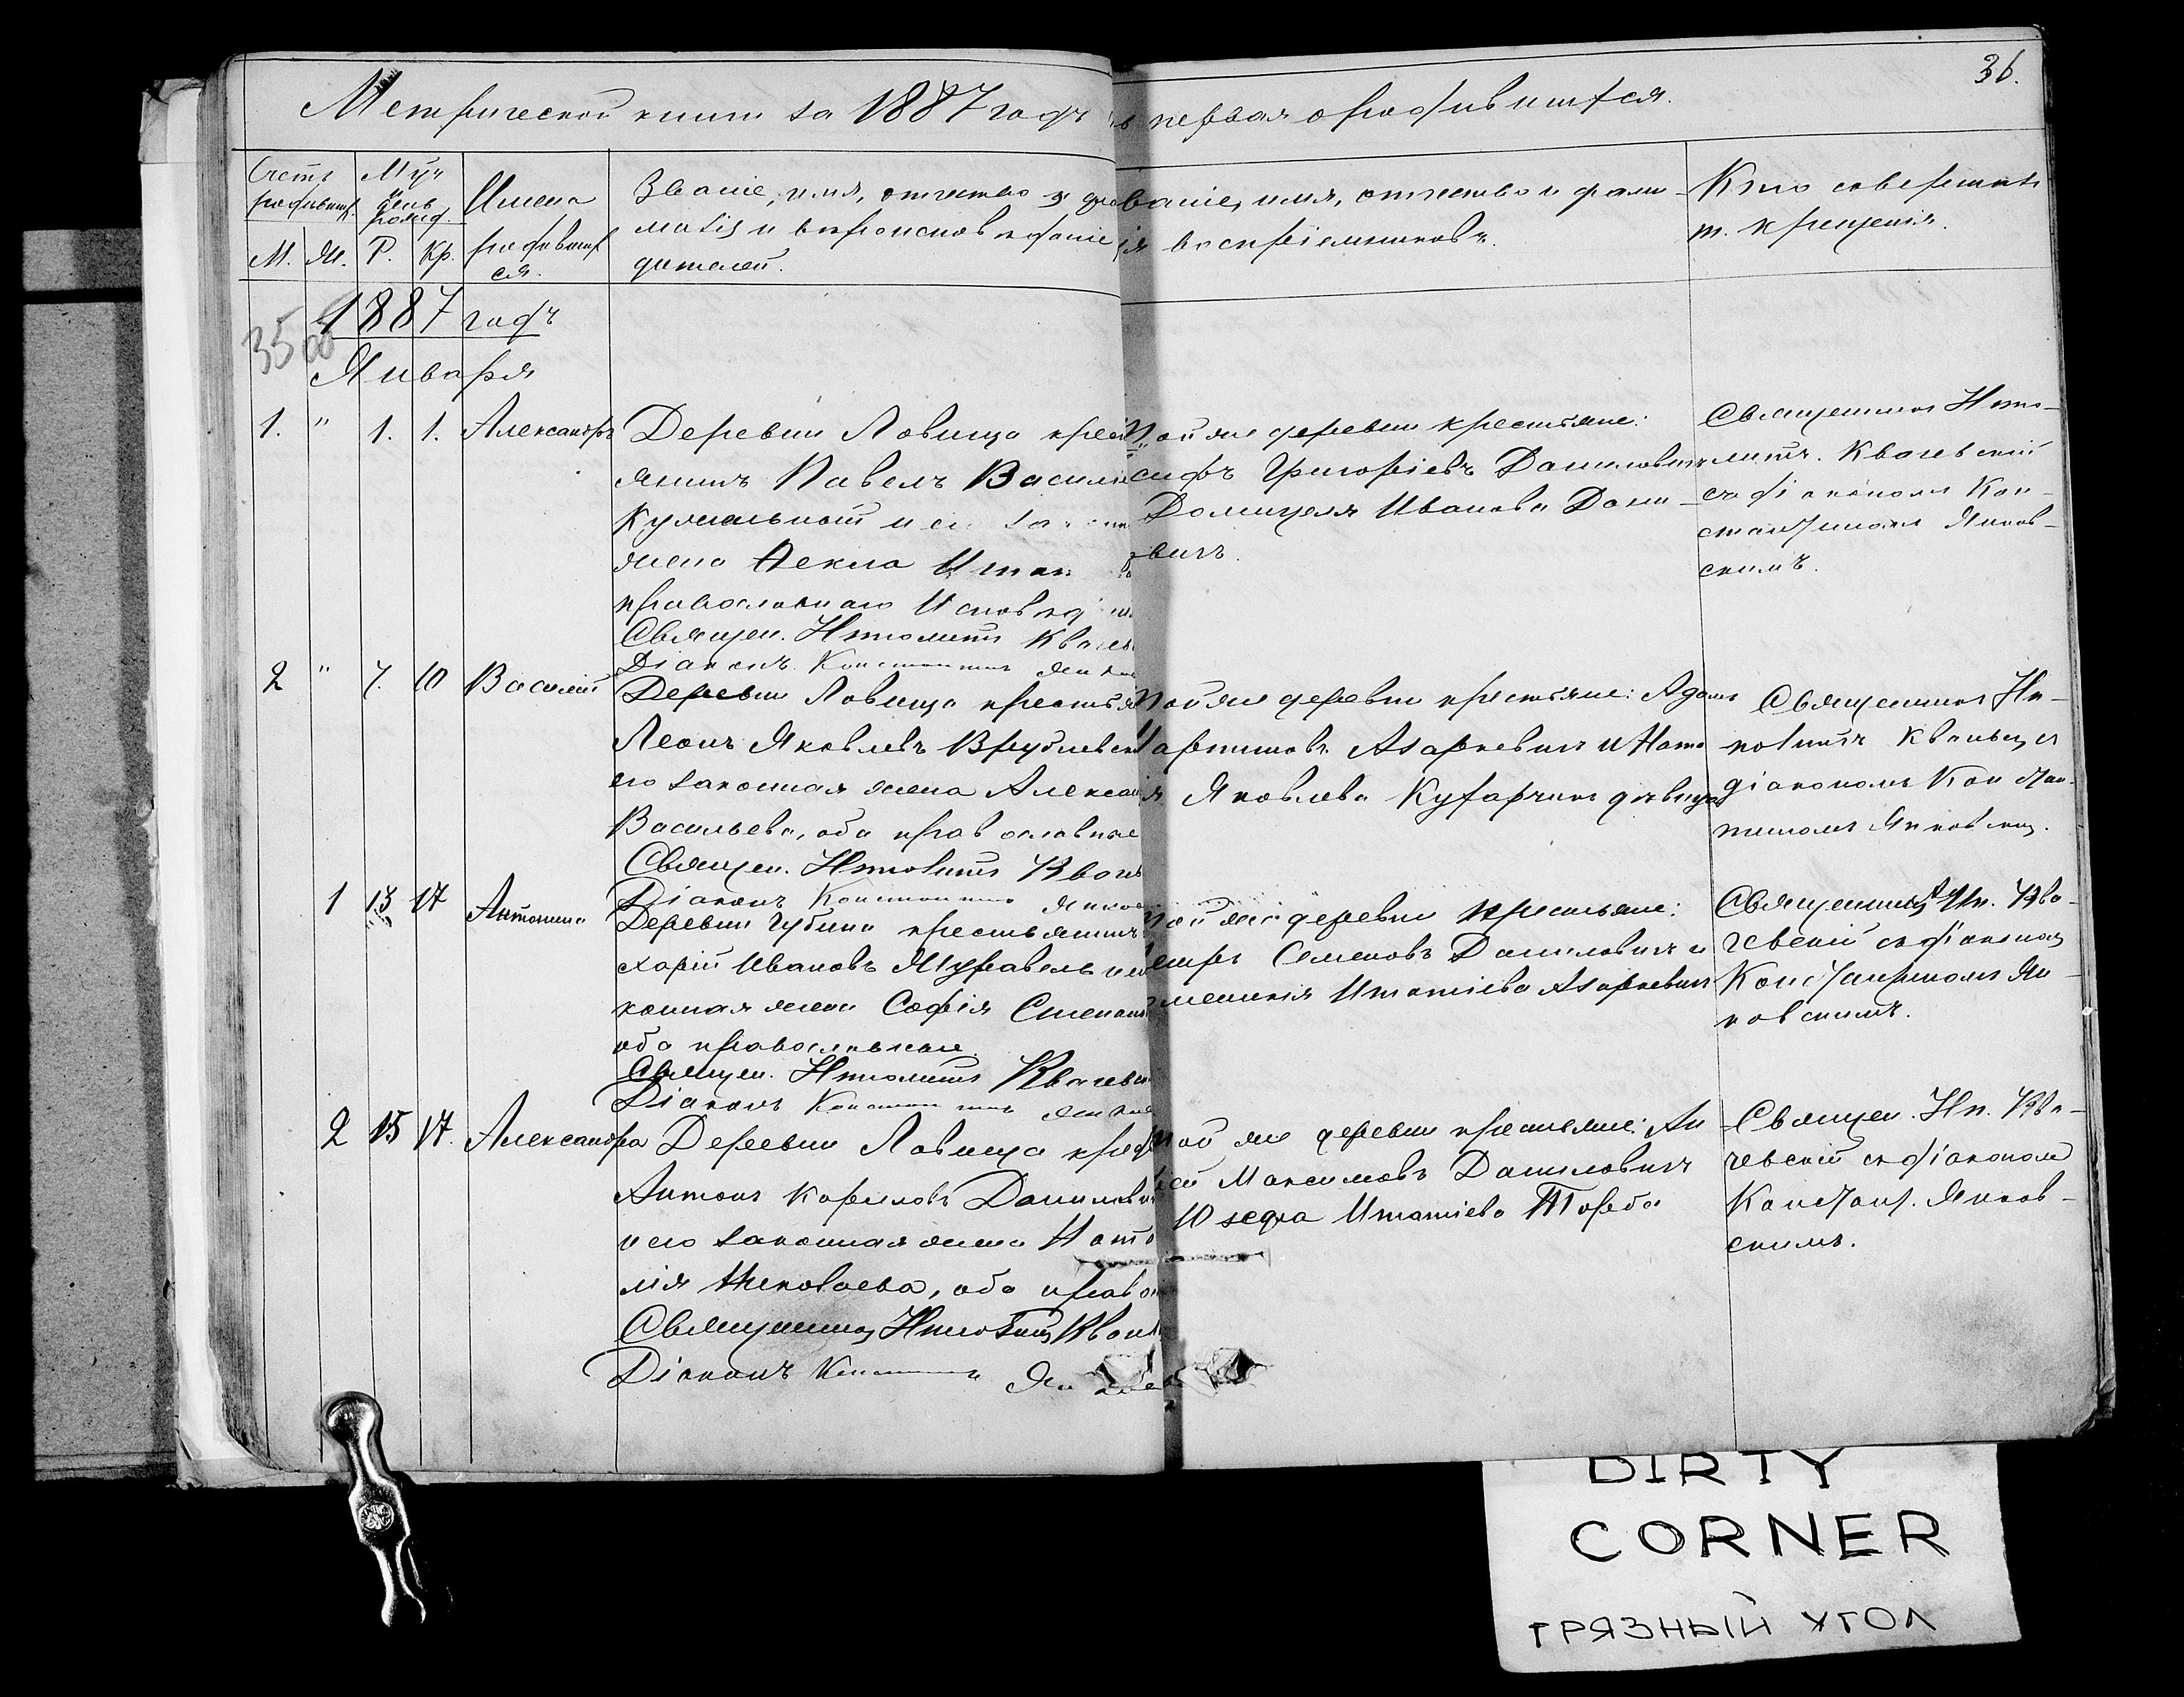 36.
Метрической книги за 1887 годъ первая о родившихся.
Счетъ
родивших.
Мцъ
и
день
рожд.
Имена
родивших
ся.
М. Ж. Р. Кр.
Званіе, имя, отчество и фа
милія и вѣроисповѣданіе
дителей.
ваніе, имя, отчество и фами-
ія воспріемниковъ.
Кто совершалъ
т. крещенія.
1887 годъ
35
Января
1. " 1. 1. Александръ
Деревни Ловища крест
янинъ Павелъ Василь
и его закон
жена Ѳекла Игнат
православнаго исповѣд
Священ. Ипполитъ Квачев
Діаконъ Константинъ Янков
той же деревни крестьяне:
сифъ Григоріевъ Даниловичъ
Домицеля Иванова Дани-
вичъ.
Священникъ Иппо-
литъ Квачевскій
съ діакономъ Кон-
стантиномъ Янков-
скимъ.
2 " 7. 10 Василій
Деревни Ловища крестья
Леонъ Яковлевъ Врублевск
его законная жена Алексан
Васильева, оба православные
Священ. Ипполитъ Квачев
Діаконъ Константинъ Янков
той же деревни крестьяне: Адамъ
артиновъ Азаркевичъ и Ната
я Яковлева Кухарчикъ дѣвица
Священникъ Ип-
политъ Квачевс съ
діакономъ Констан-
тиномъ Янковскимъ.
1 13 17 Антонина
Деревни Губина крестьянинъ
харій Ивановъ Журавель и его
конная жена Софія Степан
оба православные.
Священ. Ипполитъ Квачевск
Діаконъ Константинъ Янков
той же деревни крестьяне:
етръ Семеновъ Даниловичъ и
Игнатіева Азаркевичъ
Священникъ Ип. Ква-
чевскій съ діакономъ
Константиномъ Ян-
ковскимъ.
2 15 17. Александра
Деревни Ловища крест
Антонъ Кириловъ Данилович
и его законная жена Ната
лія Николаева, оба правос
Священникъ Ипполитъ Квач
Діаконъ Константинъ Янков
той же деревни крестьяне: Ан
ей Максимовъ Даниловичъ
Юзефа Игнатіева Торба
Священ. Ип. Ква-
чевскій съ діакономъ
Констант. Янков-
скимъ.
DIRTY
CORNER
ГРЯЗНЫЙ УГОЛ